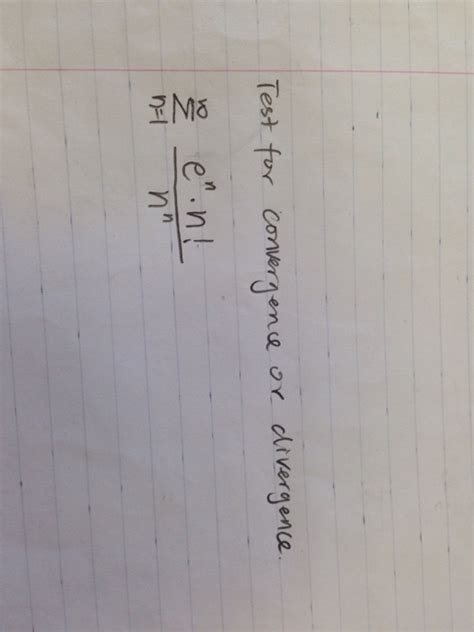 Test for convergence or divergence.
∞
Σ e^n · n! / n^n
n=1